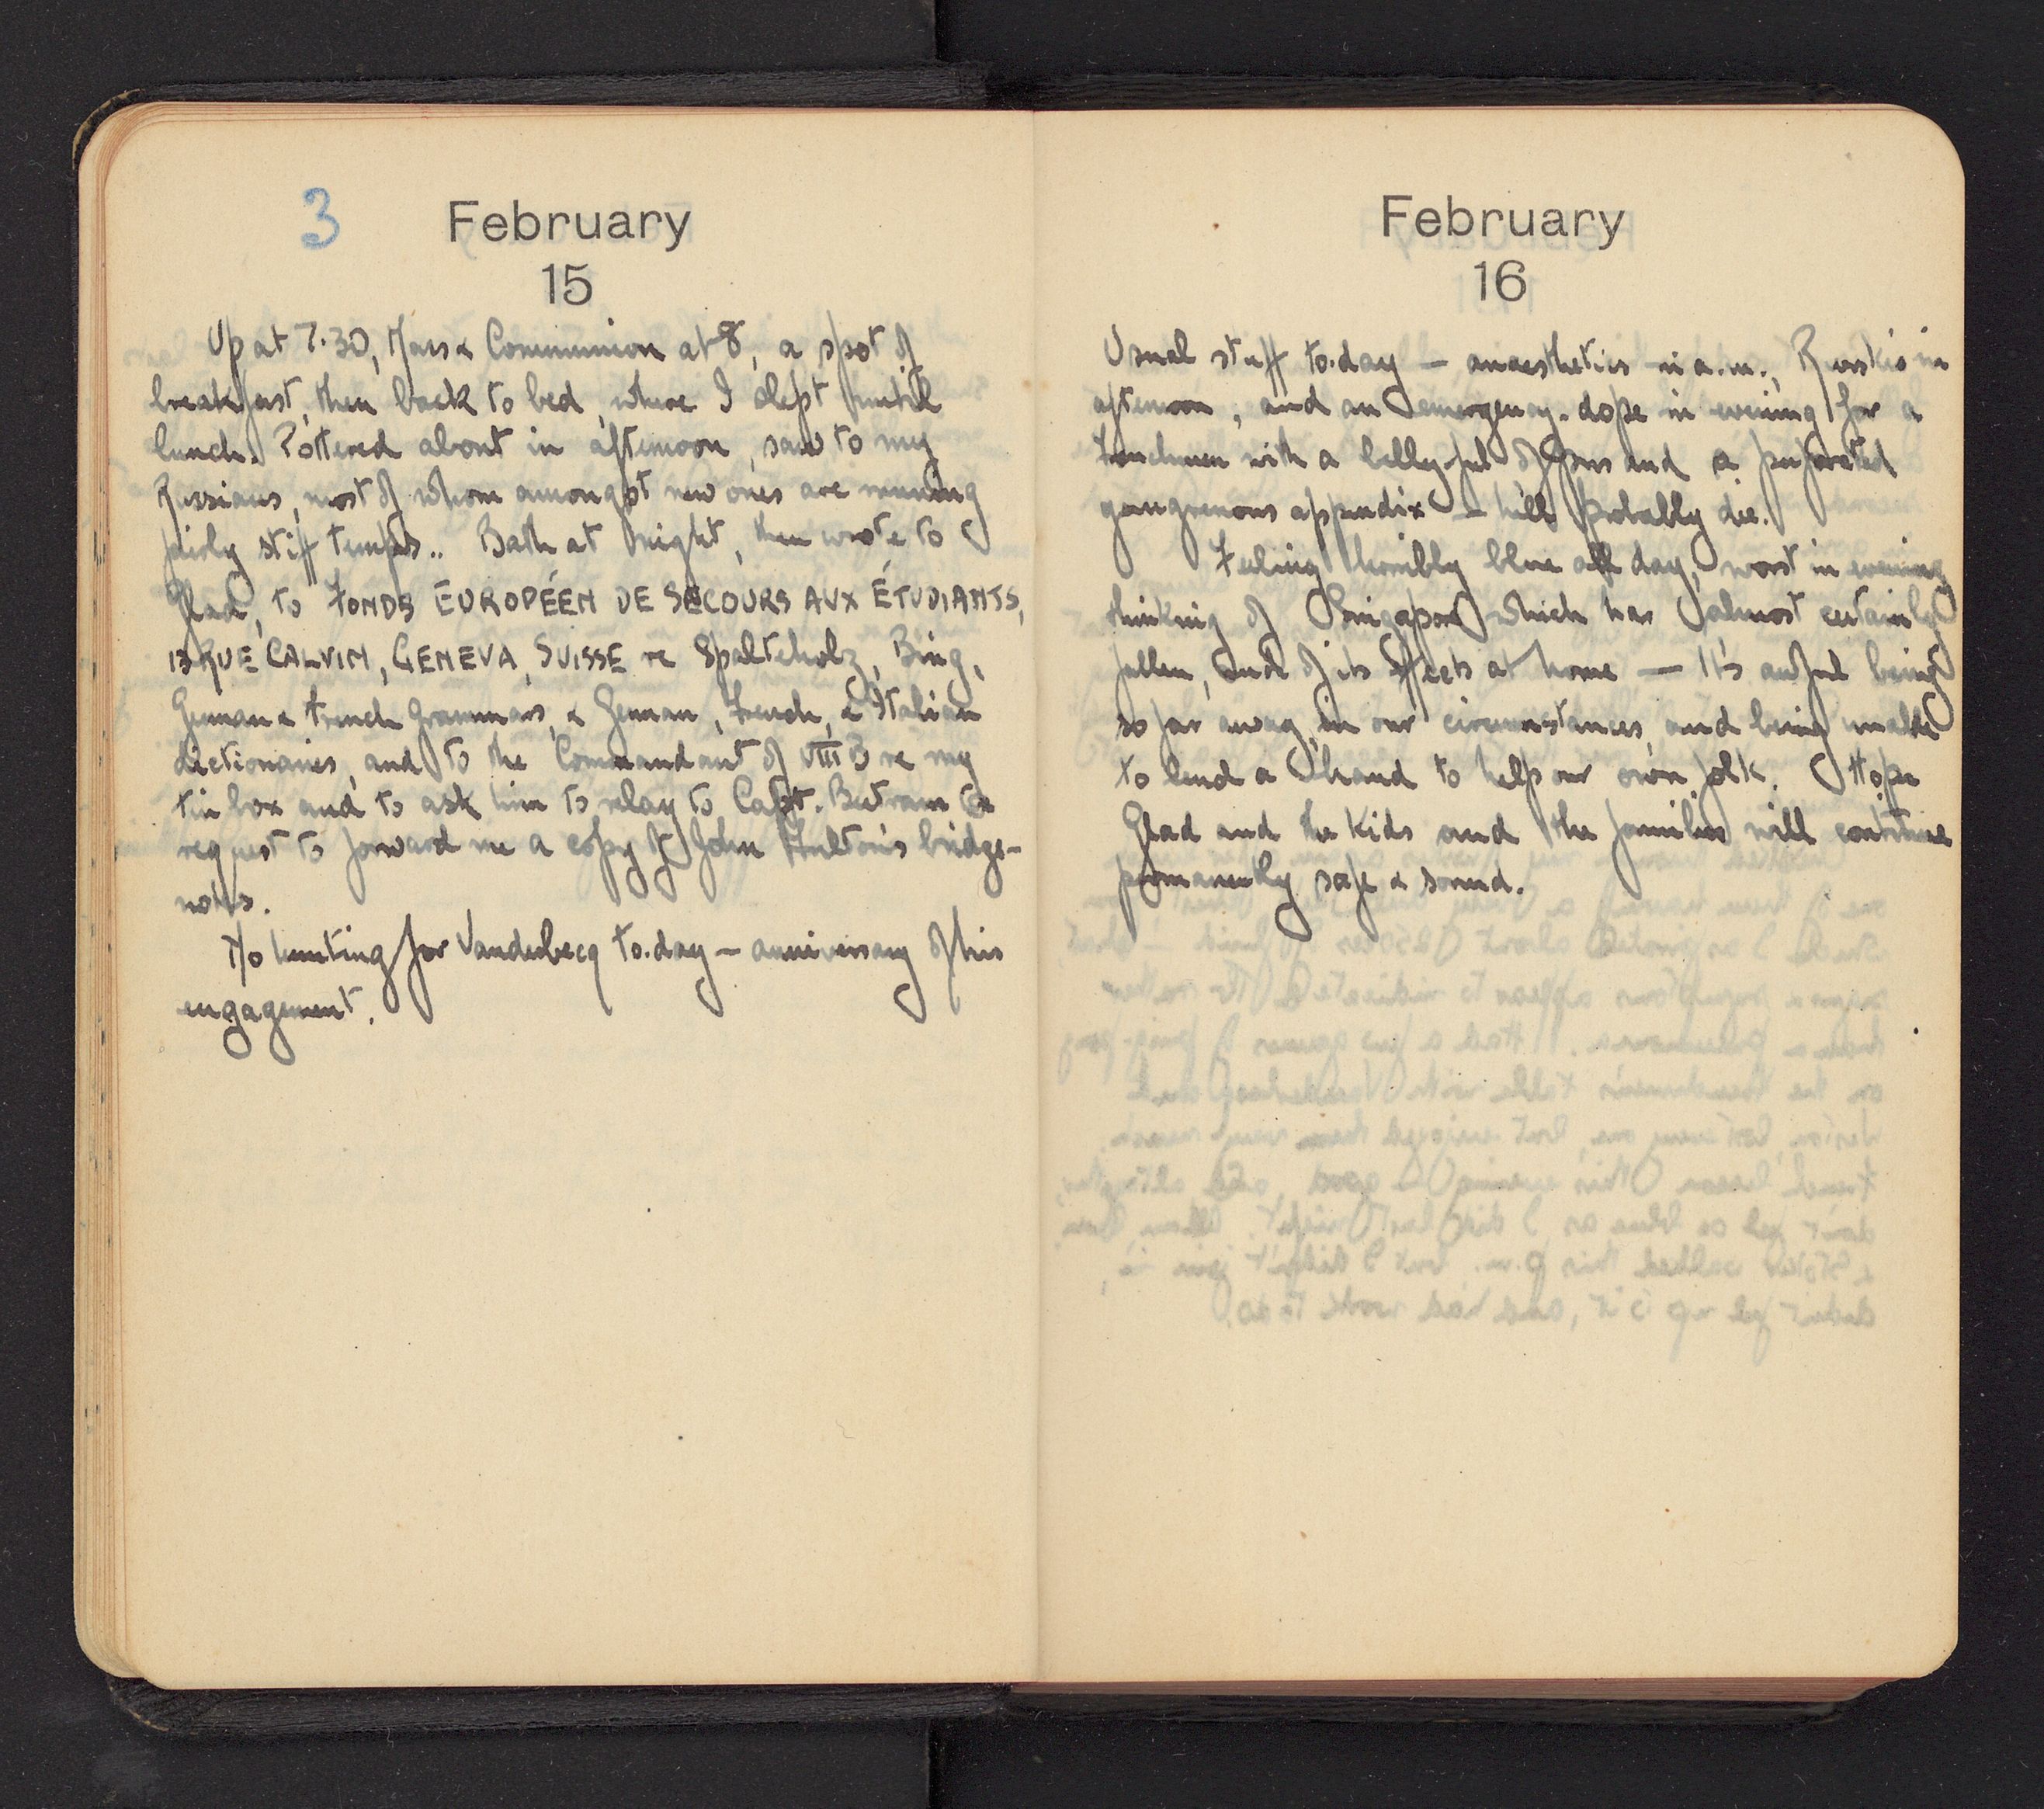 3
February
15
Up at 7.30, Mass & Communion at 8, a spot of
breakfast, then back to bed, where I slept until
lunch. Pottered about in afternoon, saw to my
Russians, most of whom amongst new ones are running
fairly stiff temps.. Bath at night, then wrote to
Glad, to FONDS EUROPÉEN DE SECOURS AUX ÉTUDIANTS,
13 RUE CALVIN, GENEVA, SUISSE re Spalteholz, Bing,
German & French Grammars, & German, French, & Italian
dictionaries, and to the Commandant of VIII B re my
tin box and to ask him to relay to Capt. Bertram a
request to forward me a copy of John Fulton's bridge-
notes.
No hunting for Vanderbecq to.day - anniversary of his
engagement.
February
16
Usual stuff to.day - anaesthetics in a.m., Russkis in
afternoon, and an emergency. dope in evening for a
Frenchman with a belly-ful of pus and a perforated
gangrenous appendix - he'll probably die.
Feeling horribly blue all day, worst in evening
thinking of Singapore which has almost certainly
fallen, and of its effects at home - It's awful being
so far away, in our circumstances, and being unable
to lend a hand to help our own folk. Hope
Glad and the kids and the families will continue
permanently safe & sound.